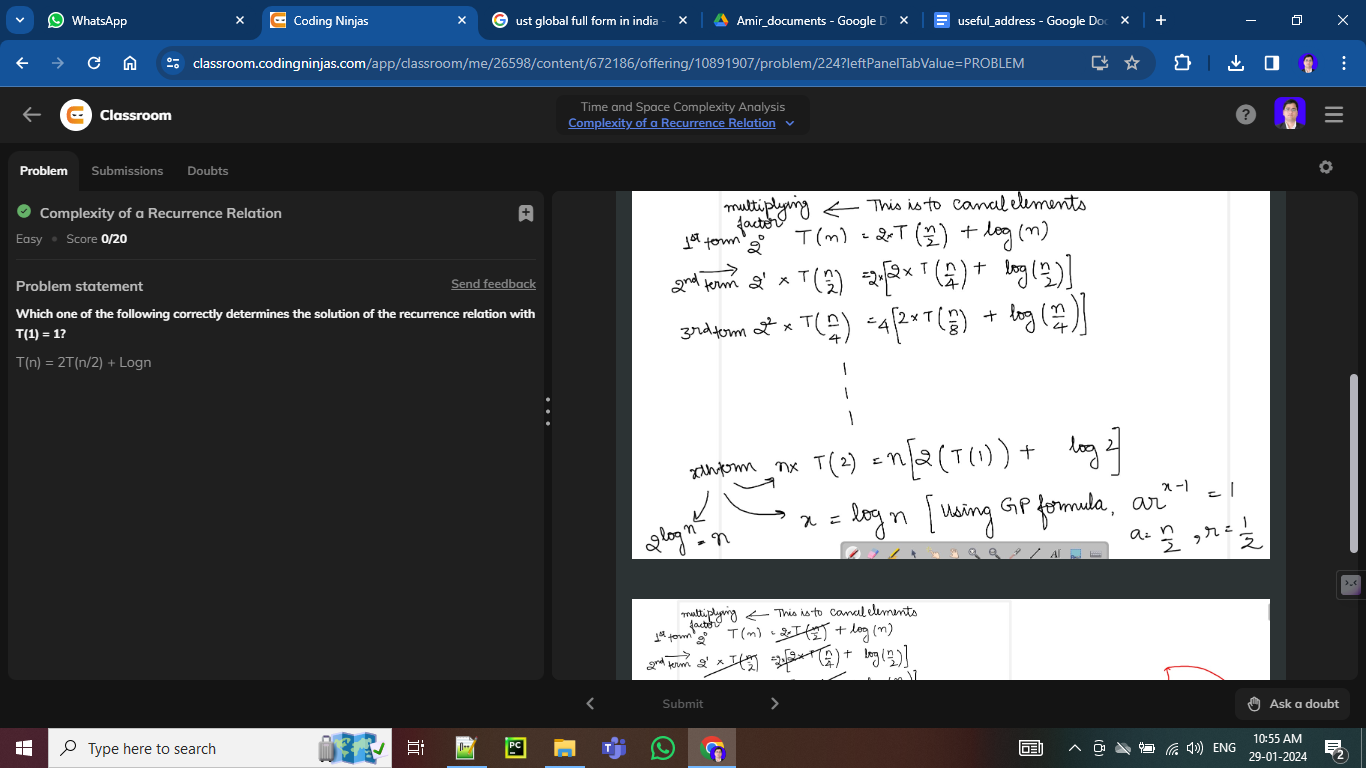 WhatsApp
Coding Ninjas
ust global full form in india -
Amir_documents - Google D
useful_address - Google Doc
classroom.codingninjas.com/app/classroom/me/26598/content/672186/offering/10891907/problem/224?leftPanelTabValue=PROBLEM
Classroom
Time and Space Complexity Analysis
Complexity of a Recurrence Relation
Problem Submissions Doubts
Complexity of a Recurrence Relation
Easy • Score 0/20
Problem statement
Send feedback
Which one of the following correctly determines the solution of the recurrence relation with
T(1) = 1?
T(n) = 2T(n/2) + Logn
multiplying factor ← This is to cancal elements
1st term 2⁰ T(n) = 2*T(n/2) + log(n)
2nd term 2¹ × T(n/2) = 2*[2 × T(n/4) + log(n/2)]
3rd term 2² × T(n/4) = 4[2 × T(n/8) + log(n/4)]
xth term n× T(2) = n[2(T(1)) + log 2]
x = log n [using GP formula, ar^(x-1) = 1
2^(log n) = n
a = n/2, r = 1/2
multiplying factor ← This is to cancal elements
1st term 2⁰ T(n) = 2*T(n/2) + log(n)
2nd term 2¹ × T(n/2) = 2*[2 × T(n/4) + log(n/2)]
Submit
Ask a doubt
Type here to search
ENG
10:55 AM
29-01-2024
2